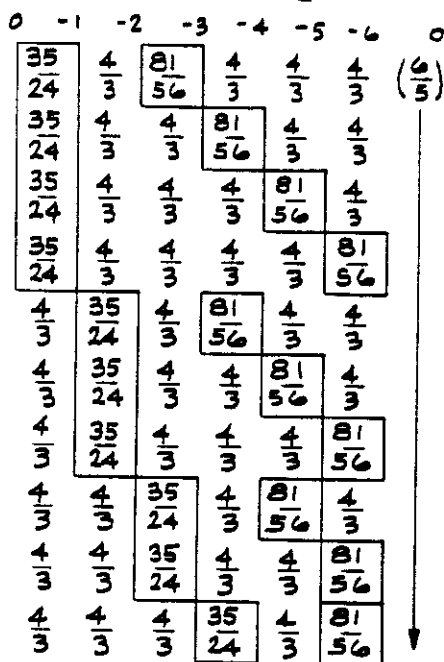 0 -1 -2 -3 -4 -5 -6 0
35/24 4/3 81/56 4/3 4/3 4/3 (6/5)
35/24 4/3 4/3 81/56 4/3 4/3
35/24 4/3 4/3 4/3 81/56 4/3
35/24 4/3 4/3 4/3 4/3 81/56
4/3 35/24 4/3 81/56 4/3 4/3
4/3 35/24 4/3 4/3 81/56 4/3
4/3 35/24 4/3 4/3 4/3 81/56
4/3 4/3 35/24 4/3 81/56 4/3
4/3 4/3 35/24 4/3 4/3 81/56
4/3 4/3 4/3 35/24 4/3 81/56